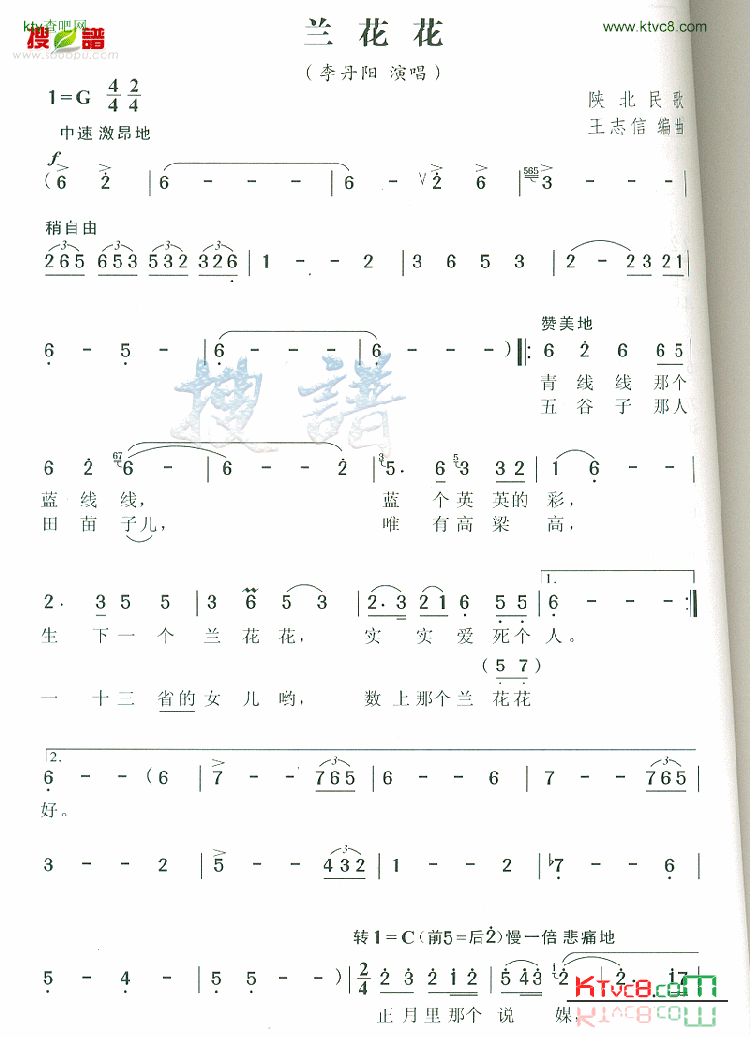 ktv查吧网
搜譜
www.souopu.com
www.ktvc8.com
兰花花
（李丹阳 演唱）
1=G 4/4 2/4
陕北民歌
王志信 编曲
中速 激昂地
f
(6 2 | 6 - - - | 6 - ∨ 2 6 | 565 3 - - - |
稍自由
3 3 3 3
265 653 532 326 | 1 - - 2 | 3 6 5 3 | 2 - 23 21 |
赞美地
6 - 5 - | 6 - - - | 6 - - - ) ‖: 6 2 6 65
青线线那个
五谷子那人
搜譜
6 2 67 6 - | 6 - - 2 | 3 5. 6 5 3 32 | 1 6 - - |
蓝线线， 蓝个英英的彩，
田苗子儿， 唯有高梁高，
1.
2. 3 5 5 | 3 6 5 3 | 2. 3 21 6 5 5 | 6 - - - :‖
生下一个兰花花， 实实爱死个人。
(5 7)
一十三省的女儿哟， 数上那个兰花花
2.
3 3
6 - - (6 | 7 - - 765 | 6 - - 6 | 7 - - 765 |
好。
3
3 - - 2 | 5 - - 432 | 1 - - 2 | ♭7 - - 6 |
转1=C（前5=后2）慢一倍 悲痛地
5 - - 4 | 5 5 - - ) | 2/4 2 3 2 12 | 5 43 1 2 | 2. 17
正月里那个说媒，
KTvc8.com